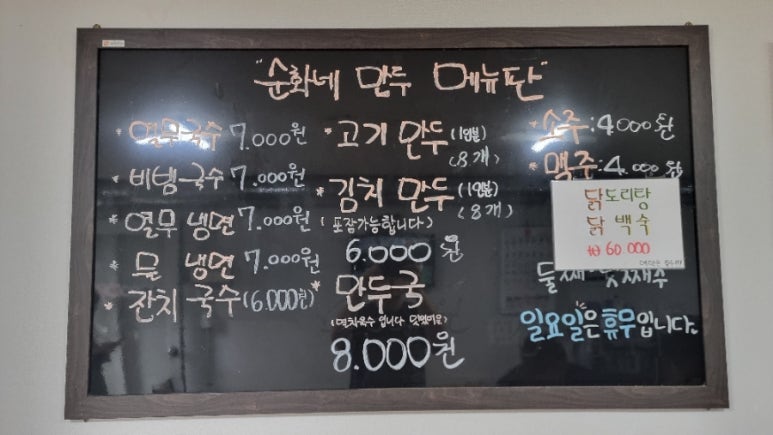 "순화네 만두 메뉴판"
* 열무국수 7.000원
* 비빔국수 7.000원
* 열무 냉면 7.000원
* 물 냉면 7.000원
* 잔치 국수 (6.000원)
* 고기 만두 (1인분)
(8개)
* 김치 만두 (1인분)
(8개)
(포장가능합니다)
6.000원
* 만두국
8.000원
* 소주: 4000원
* 맥주: 4.000원
닭도리탕
닭 백숙
₩ 60.000
일요일은 휴무입니다.